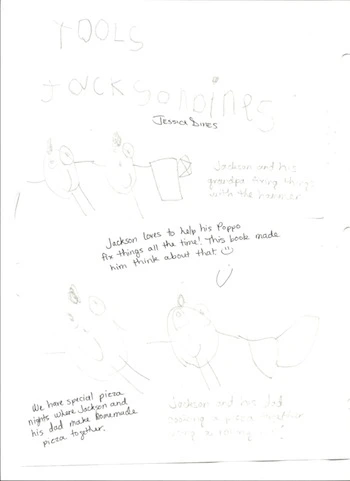 TOOLS
Jacksondines
Jessica Dines
Jackson and his
grandpa fixing things
with the hammer
Jackson loves to help his Poppo
fix things all the time! This book made
him think about that.
We have special pizza
nights where Jackson and
his dad make homemade
pizza together.
Jackson and his dad
making a pizza together